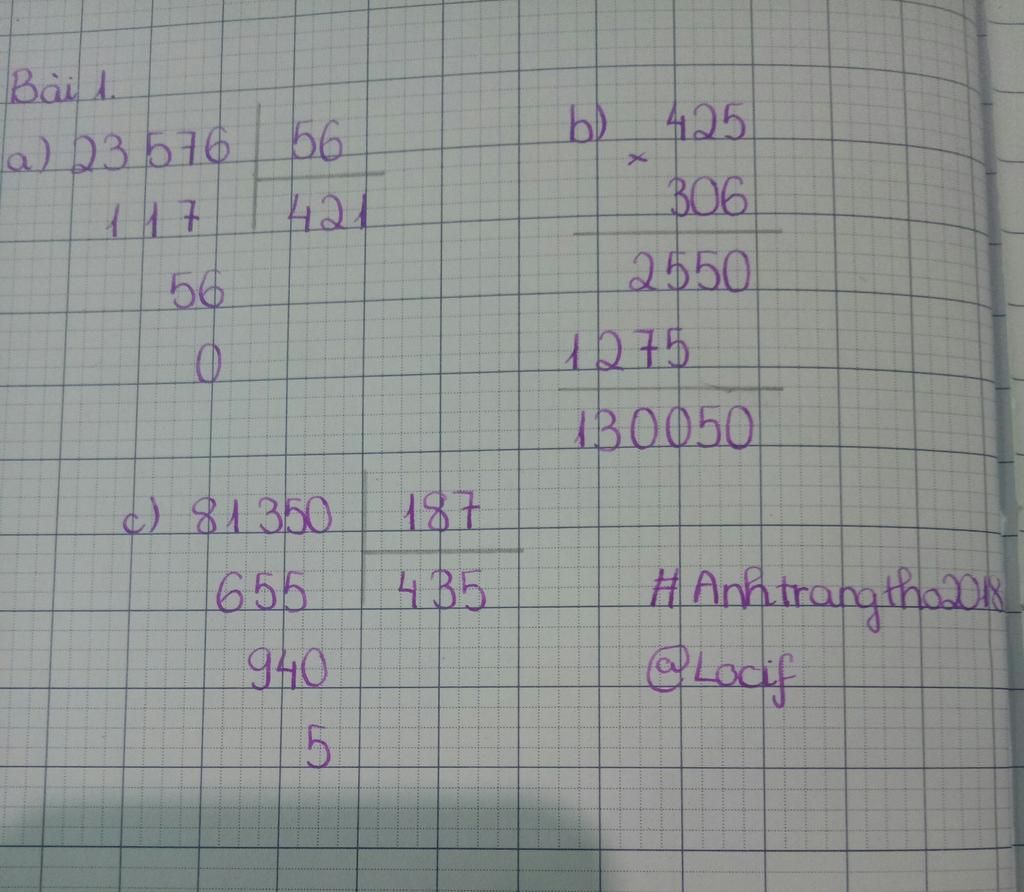 Bài 1.
a) 23576 56
117 421
56
0
b) 425
×
306
2550
1275
130050
c) 81350 187
655 435
940
5
#Anhtrangtho2018
@Locif